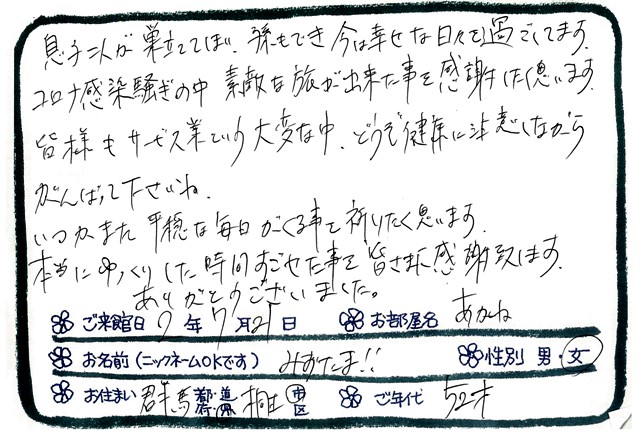 息子二人が巣立てば、孫もでき今は幸せな日々を過ごしてます。
コロナ感染騒ぎの中 素敵な旅が出来た事を感謝したく思います。
皆様もサービス業という大変な中、どうぞ健康に注意しながら
がんばって下さいね。
いつかまた 平穏な毎日がくる事を祈りたく思います。
本当にゆっくりした時間すごせた事を皆さまに感謝致します。
ありがとうございました。
ご来館日 2年7月21日 お部屋名 あかね
お名前(ニックネームOKです) みずたま!! 性別 男・女
お住まい 群馬 都・道・府・県 桐生 市・区 ご年代 52才